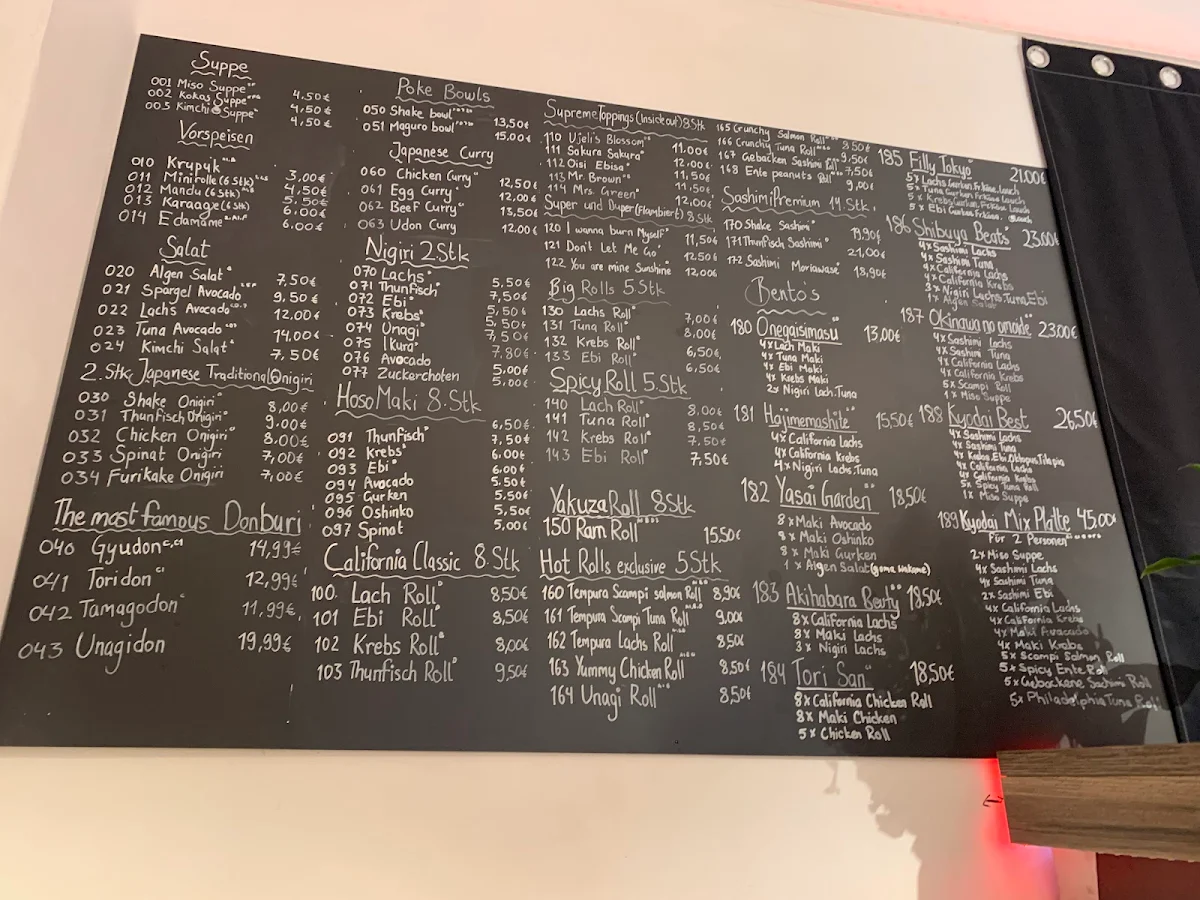 Suppe
001 Miso Suppe 4,50€
002 Kokos Suppe 4,50€
003 Kimchi Suppe 4,50€
Vorspeisen
010 Krupuk 3,00€
011 Minirolle (6 Stk) 4,50€
012 Mandu (6 Stk) 5,50€
013 Karaage (6 Stk) 6,00€
014 Edamame 6,00€
Salat
020 Algen Salat 7,50€
021 Spargel Avocado 9,50€
022 Lachs Avocado 12,00€
023 Tuna Avocado 14,00€
024 Kimchi Salat 7,50€
2.Stk Japanese Traditional Onigiri
030 Shake Onigiri 8,00€
031 Thunfisch Onigiri 9,00€
032 Chicken Onigiri 8,00€
033 Spinat Onigiri 7,00€
034 Furikake Onigiri 7,00€
The most famous Donburi
040 Gyudon 14,99€
041 Toridon 12,99€
042 Tamagodon 11,99€
043 Unagidon 19,99€
Poke Bowls
050 Shake bowl 13,50€
051 Maguro bowl 15,00€
Japanese Curry
060 Chicken Curry 12,50€
061 Egg Curry 12,00€
062 Beef Curry 13,50€
063 Udon Curry 12,00€
Nigiri 2.Stk
070 Lachs 5,50€
071 Thunfisch 7,50€
072 Ebi 5,50€
073 Krebs 5,50€
074 Unagi 7,50€
075 Ikura 7,80€
076 Avocado 5,00€
077 Zuckerschoten 5,00€
Hoso Maki 8.Stk
6,50€
091 Thunfisch 7,50€
092 Krebs 6,00€
093 Ebi 6,00€
094 Avocado 5,50€
095 Gurken 5,50€
096 Oshinko 5,50€
097 Spinat 5,00€
California Classic 8.Stk
100. Lach Roll 8,50€
101 Ebi Roll 8,50€
102 Krebs Roll 8,00€
103 Thunfisch Roll 9,50€
Supreme Toppings (Inside out) 8.Stk
110 Ujeli's Blossom 11,00€
111 Sakura Sakura 12,00€
112 Oisi Ebisa 11,50€
113 Mr. Brown 11,50€
114 Mrs. Green 12,00€
Super und Duper (Flambiert) 8.Stk
120 I wanna burn Myself 11,50€
121 Don't Let Me Go 12,50€
122 You are mine Sunshine 12,00€
Big Rolls 5.Stk
130 Lachs Roll 7,00€
131 Tuna Roll 8,00€
132 Krebs Roll 6,50€
133 Ebi Roll 6,50€
Spicy Roll 5.Stk
140 Lach Roll 8,00€
141 Tuna Roll 8,50€
142 Krebs Roll 7,50€
143 Ebi Roll 7,50€
Yakuza Roll 8Stk
150 Ram Roll 15,50€
Hot Rolls exclusive 5Stk
160 Tempura Scampi salmon Roll 8,90€
161 Tempura Scampi Tuna Roll 9,00€
162 Tempura Lachs Roll 8,50€
163 Yummy Chicken Roll 8,50€
164 Unagi Roll 8,50€
165 Crunchy Salmon Roll 8,50€
166 Crunchy Tuna Roll 9,50€
167 Gebacken Sashimi Roll 7,50€
168 Ente peanuts Roll 9,00€
Sashimi Premium 14.Stk.
170 Shake Sashimi 19,90€
171 Thunfisch Sashimi 21,00€
172 Sashimi Moriawase 18,90€
Bento's
180 Onegaisimasu 13,00€
4x Lach Maki
4x Tuna Maki
4x Ebi Maki
4x Krebs Maki
2x Nigiri Lach,Tuna
181 Hajimemashite 15,50€
4x California Lachs
4x California Krebs
4x Nigiri Lachs,Tuna
182 Yasai Garden 18,50€
8x Maki Avocado
8x Maki Oshinko
8x Maki Gurken
1x Algen Salat (goma wakame)
183 Akihabara Beuty 18,50€
8x California Lachs
8x Maki Lachs
3x Nigiri Lachs
184 Tori San 18,50€
8x California Chicken Roll
8x Maki Chicken
5x Chicken Roll
185 Filly Tokyo 21,00€
5x Lachs Gurken Frkäse Lauch
5x Tuna Gurken Frkäse Lauch
5x Krebs Gurken, Frkäse Lauch
5x Ebi Gurken Frkäse, Lauch
186 Shibuya Beats 23,00€
4x Sashimi Lachs
4x Sashimi Tuna
4x California Lachs
4x California Krebs
3x Nigiri Lachs,Tuna,Ebi
1x Algen Salat
187 Okinawa no omoide 23,00€
4x Sashimi Lachs
4x Sashimi Tuna
4x California Lachs
4x California Krebs
5x Scampi Roll
1x Miso Suppe
188 Kyodai Best 26,50€
4x Sashimi Lachs
4x Sashimi Tuna
4x Krebs,Ebi,Oktopus,Tilapia
4x California Lachs
4x California
5x Spicy Tuna Roll
1x Miso Suppe
189 Kyodai Mix Platte 45,00€
Für 2 Personen
2x Miso Suppe
4x Sashimi Lachs
4x Sashimi Tuna
2x Sashimi Ebi
4x California Lachs
4x California Krebs
4x Maki Avocado
4x Maki Krebs
5x Scampi Salmon Roll
5x Spicy Ente Roll
5x Gebackene Sashimi Roll
5x Philadelphia Tuna Roll